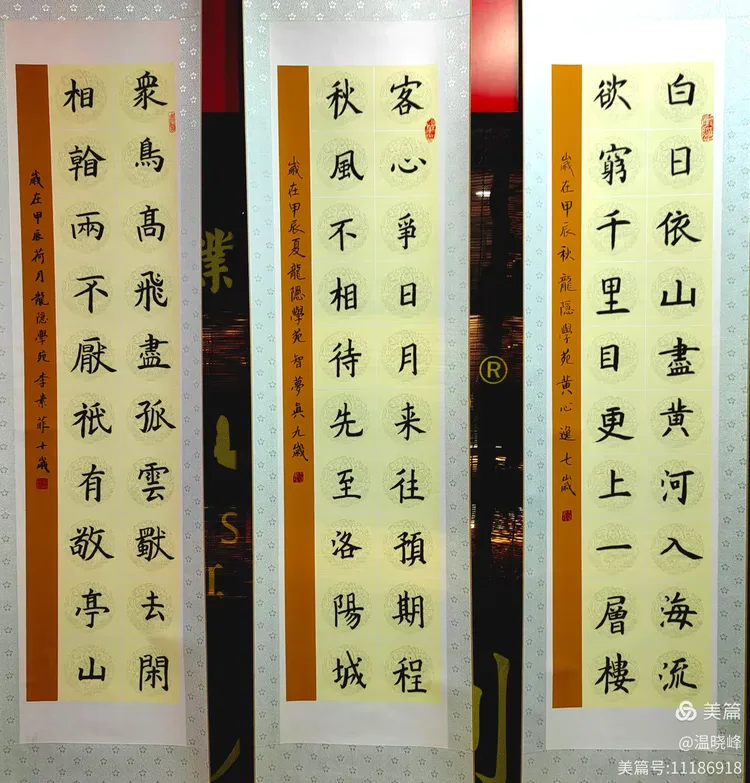 白日依山盡黄河入海流
欲窮千里目更上一層樓
歲在甲辰秋龍隱學苑黄心七歲
客心爭日月来往預期程
秋風不相待先至洛陽城
歲在甲辰夏龍隱學苑智夢與九歲
衆鳥髙飛盡孤雲獸去閑
相兩不厭祇有敬亭山
歲在甲辰荷月龍隱學苑李菲十歲
業
®
S
美篇
@温晓峰
美篇号:11186918